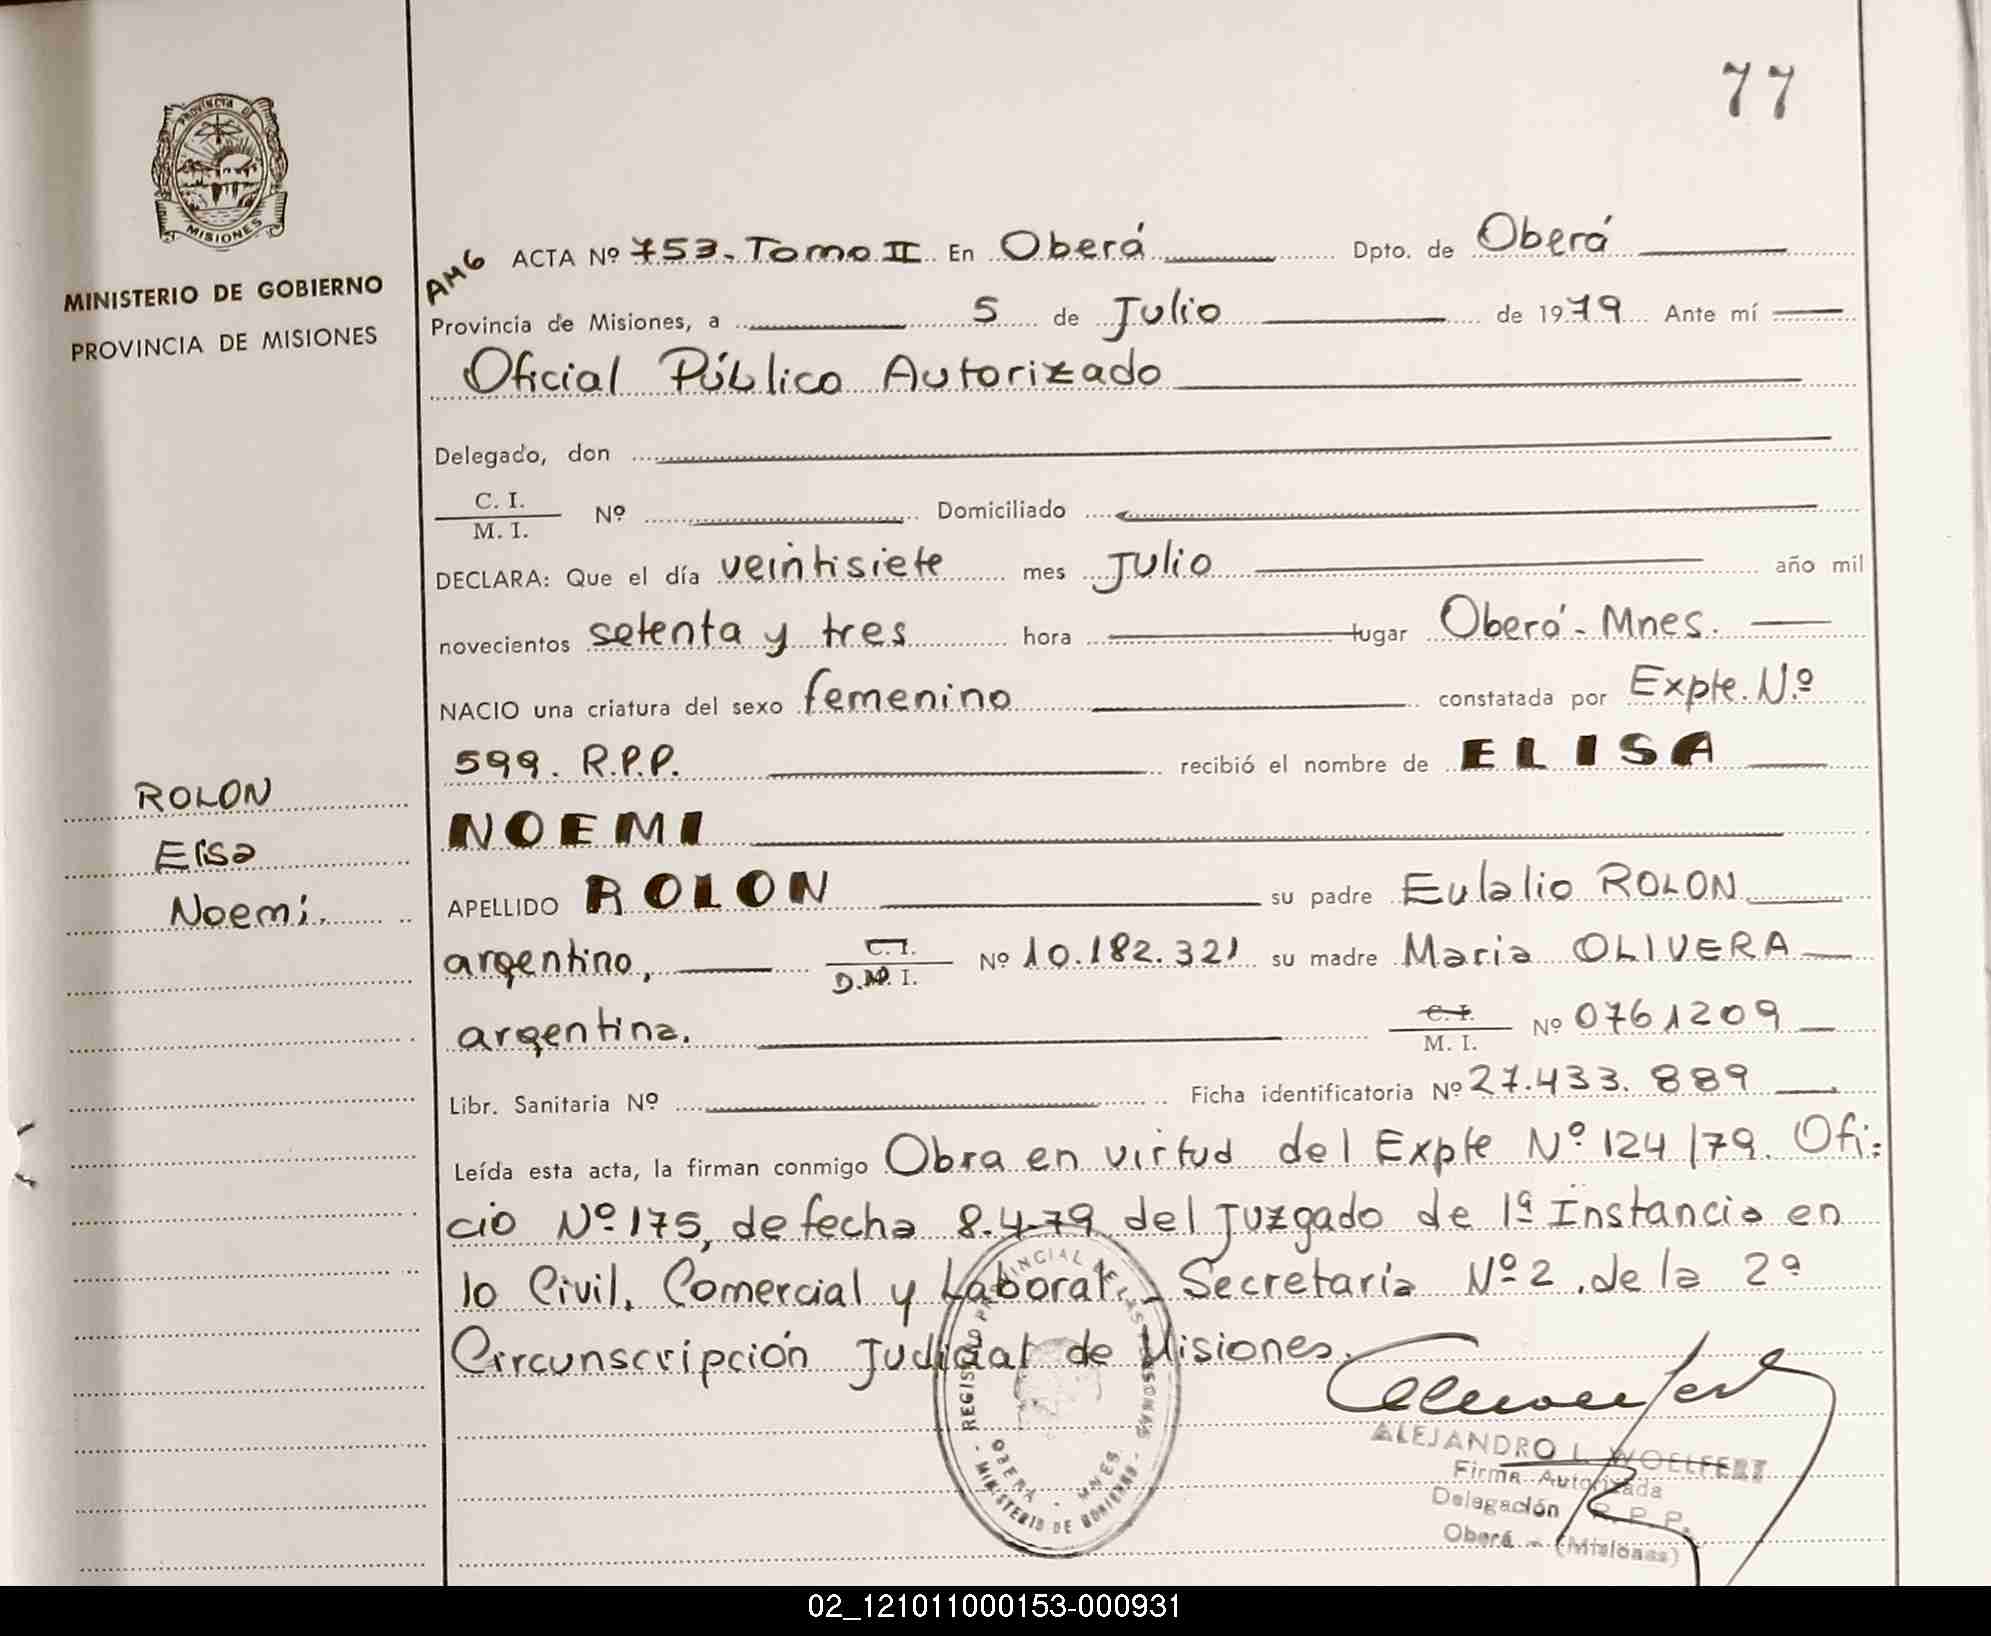 77
PROVINCIA DE
MISIONES
MINISTERIO DE GOBIERNO
PROVINCIA DE MISIONES
AM6 ACTA Nº 753. Tomo II En Oberá Dpto. de Oberá
Provincia de Misiones, a 5 de Julio de 1979 Ante mí
Oficial Público Autorizado
Delegado, don
C. I.
M. I. Nº Domiciliado
DECLARA: Que el día veintisiete mes Julio año mil
novecientos setenta y tres hora lugar Oberá - Mnes.
NACIO una criatura del sexo femenino constatada por Expte. N.º
599. R.P.P. recibió el nombre de ELISA
NOEMI
ROLON
Elisa
Noemi.
APELLIDO ROLON su padre Eulalio ROLON
argentino, C. I.
D.N. I. Nº 10.182.321 su madre Maria OLIVERA
argentina. C. I.
M. I. Nº 0761209
Libr. Sanitaria Nº Ficha identificatoria Nº 27.433.889
Leída esta acta, la firman conmigo Obra en virtud del Expte Nº 124/79. Ofi-
cio Nº 175, de fecha 8.4.79 del Juzgado de 1ª Instancia en
lo Civil, Comercial y Laboral. - Secretaria Nº 2, de la 2ª
Circunscripción Judicial de Misiones.
REGISTRO PROVINCIAL DE LAS PERSONAS
OBERA - MNES
- MINISTERIO DE GOBIERNO -
ALEJANDRO L. WOELFERT
Firma Autorizada
Delegación R. P. P.
Oberá - (Misiones)
02_121011000153-000931